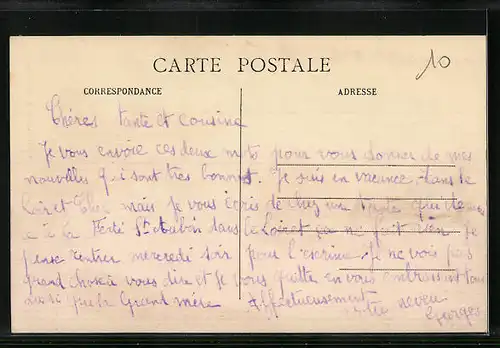 10
CARTE POSTALE
CORRESPONDANCE
ADRESSE
Chères tante et cousine
Je vous envoie ces deux mots pour vous donner de mes
nouvelles qui sont très bonnes. Je suis en vacance dans le
Loir et Cher mais je vous écris de chez une tante qui
à la Ferté St Aubin dans le Loiret ça ne fait rien je
pense rentrer mercredi soir pour l'escrime. Je ne vois pas
grand chose à vous dire et je vous quitte en vous embrassant tous
ainsi que Grand mère Affectueusement
neveu
Georges